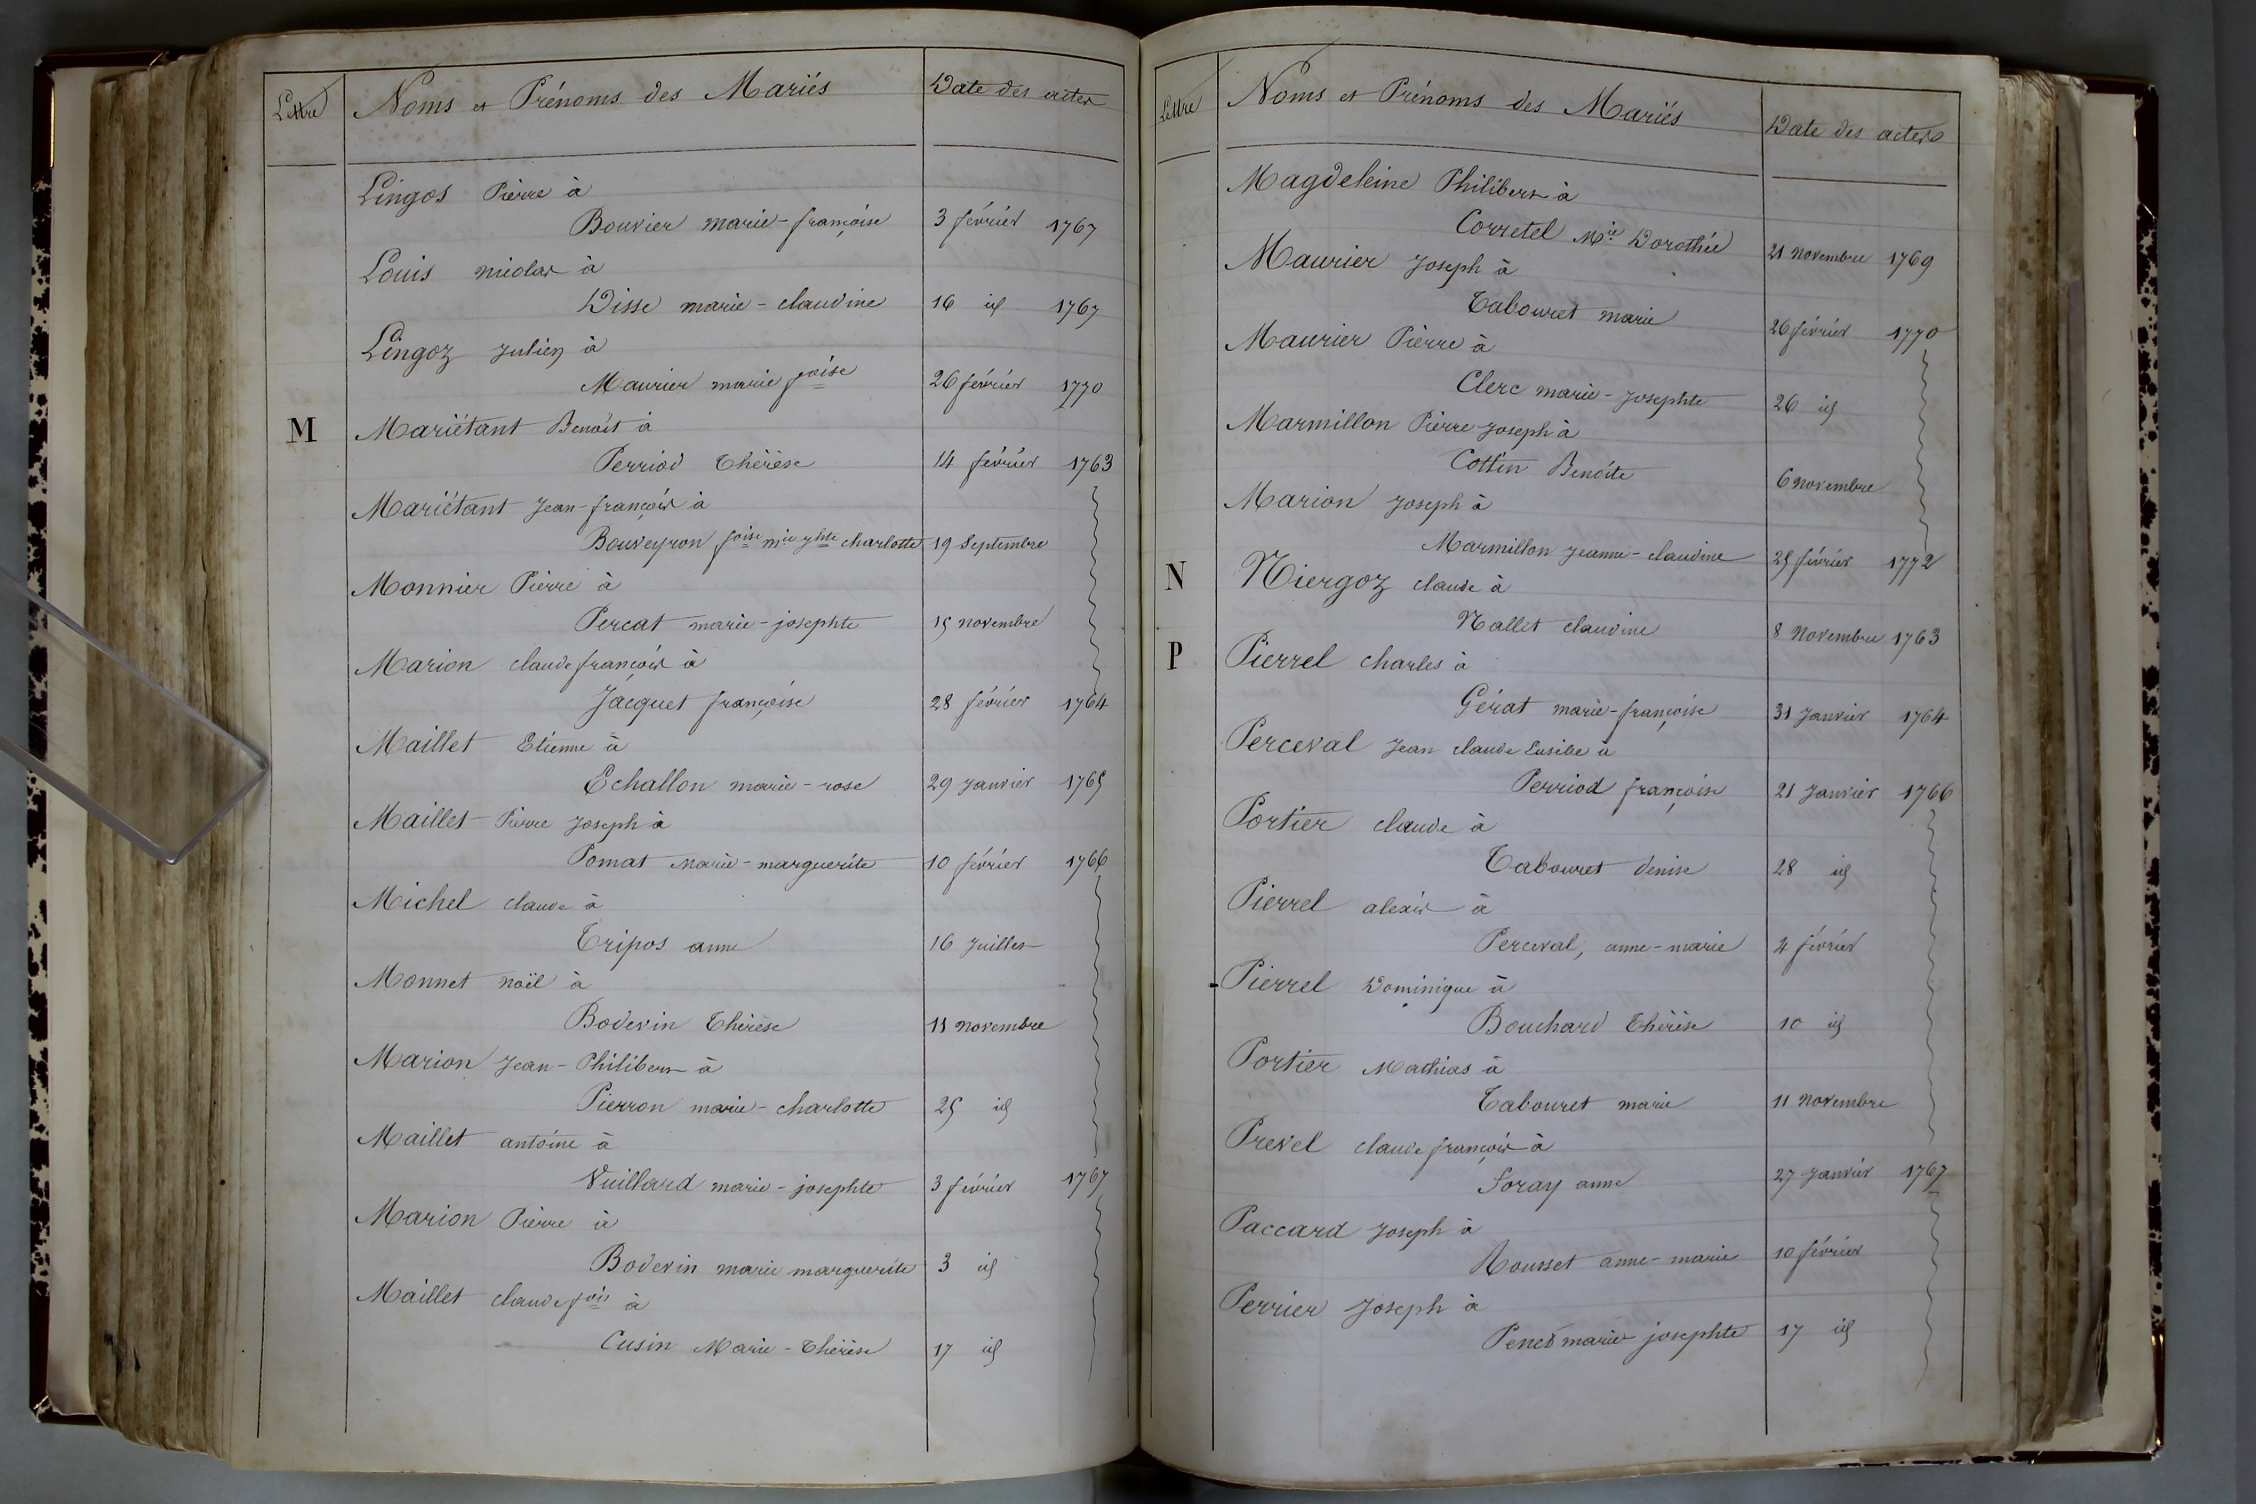 Lettre Noms et Prénoms des Mariés Date des actes
Lingos Pierre à
Bouvier marie-françoise 3 février 1767
Louis nicolas à
Disse marie-claudine 16 id 1767
Lingoz Julien à
Maurier marie foise 26 février 1770
M Mariétant Benoît à
Perriod Thérèse 14 février 1763
Mariétant Jean-françois à
Bouveyron foise mie jhte charlotte 19 Septembre
Monnier Pierre à
Percat marie-josephte 15 novembre
Marion claude françois à
Jacquet françoise 28 février 1764
Maillet Etienne à
Echallon marie-rose 29 Janvier 1765
Maillet Pierre Joseph à
Pomat Marie-marguerite 10 février 1766
Michel claude à
Tripos anne 16 Juillet
Monnet noël à
Boderin Thérèse 11 novembre
Marion Jean-Philibert à
Pierron marie-charlotte 25 id
Maillet antoine à
Vuillard marie-josephte 3 février 1767
Marion Pierre à
Boderin marie marguerite 3 id
Maillet claude fois à
Cusin Marie-Thérèse 17 id
Lettre Noms et Prénoms des Mariés Date des actes
Magdeleine Philibert à
Corretel Mie Dorothée 21 novembre 1769
Maurier Joseph à
Tabouret marie 26 février 1770
Maurier Pierre à
Clerc marie-Josephte 26 id
Marmillon Pierre Joseph à
Cottin Benoîte 6 novembre
Marion Joseph à
Marmillon Jeanne-claudine 25 février 1772
N Niergoz claude à
Nallet claudine 8 Novembre 1763
P Pierrel charles à
Gérat marie-françoise 31 Janvier 1764
Perceval Jean claude Eusibe à
Perriod françoise 21 Janvier 1766
Portier claude à
Tabouret denise 28 id
Pierrel alexis à
Perceval, anne-marie 4 février
Pierrel Dominique à
Bouchard Thérèse 10 id
Portier Mathias à
Tabouret marie 11 novembre
Prevel claude françois à
Soray anne 27 Janvier 1767
Paccard Joseph à
Rousset anne-marie 10 février
Perrier Joseph à
marie josephte 17 id